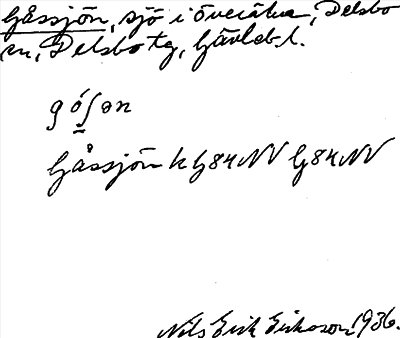 Gåssjön, sjö i Överälve, Delsbo
sn, Delsbo tg, Gävleb. l.
gó̱ʃən
Gåssjön k G84NV G84NV
Nils Erik Eriksson 1936.